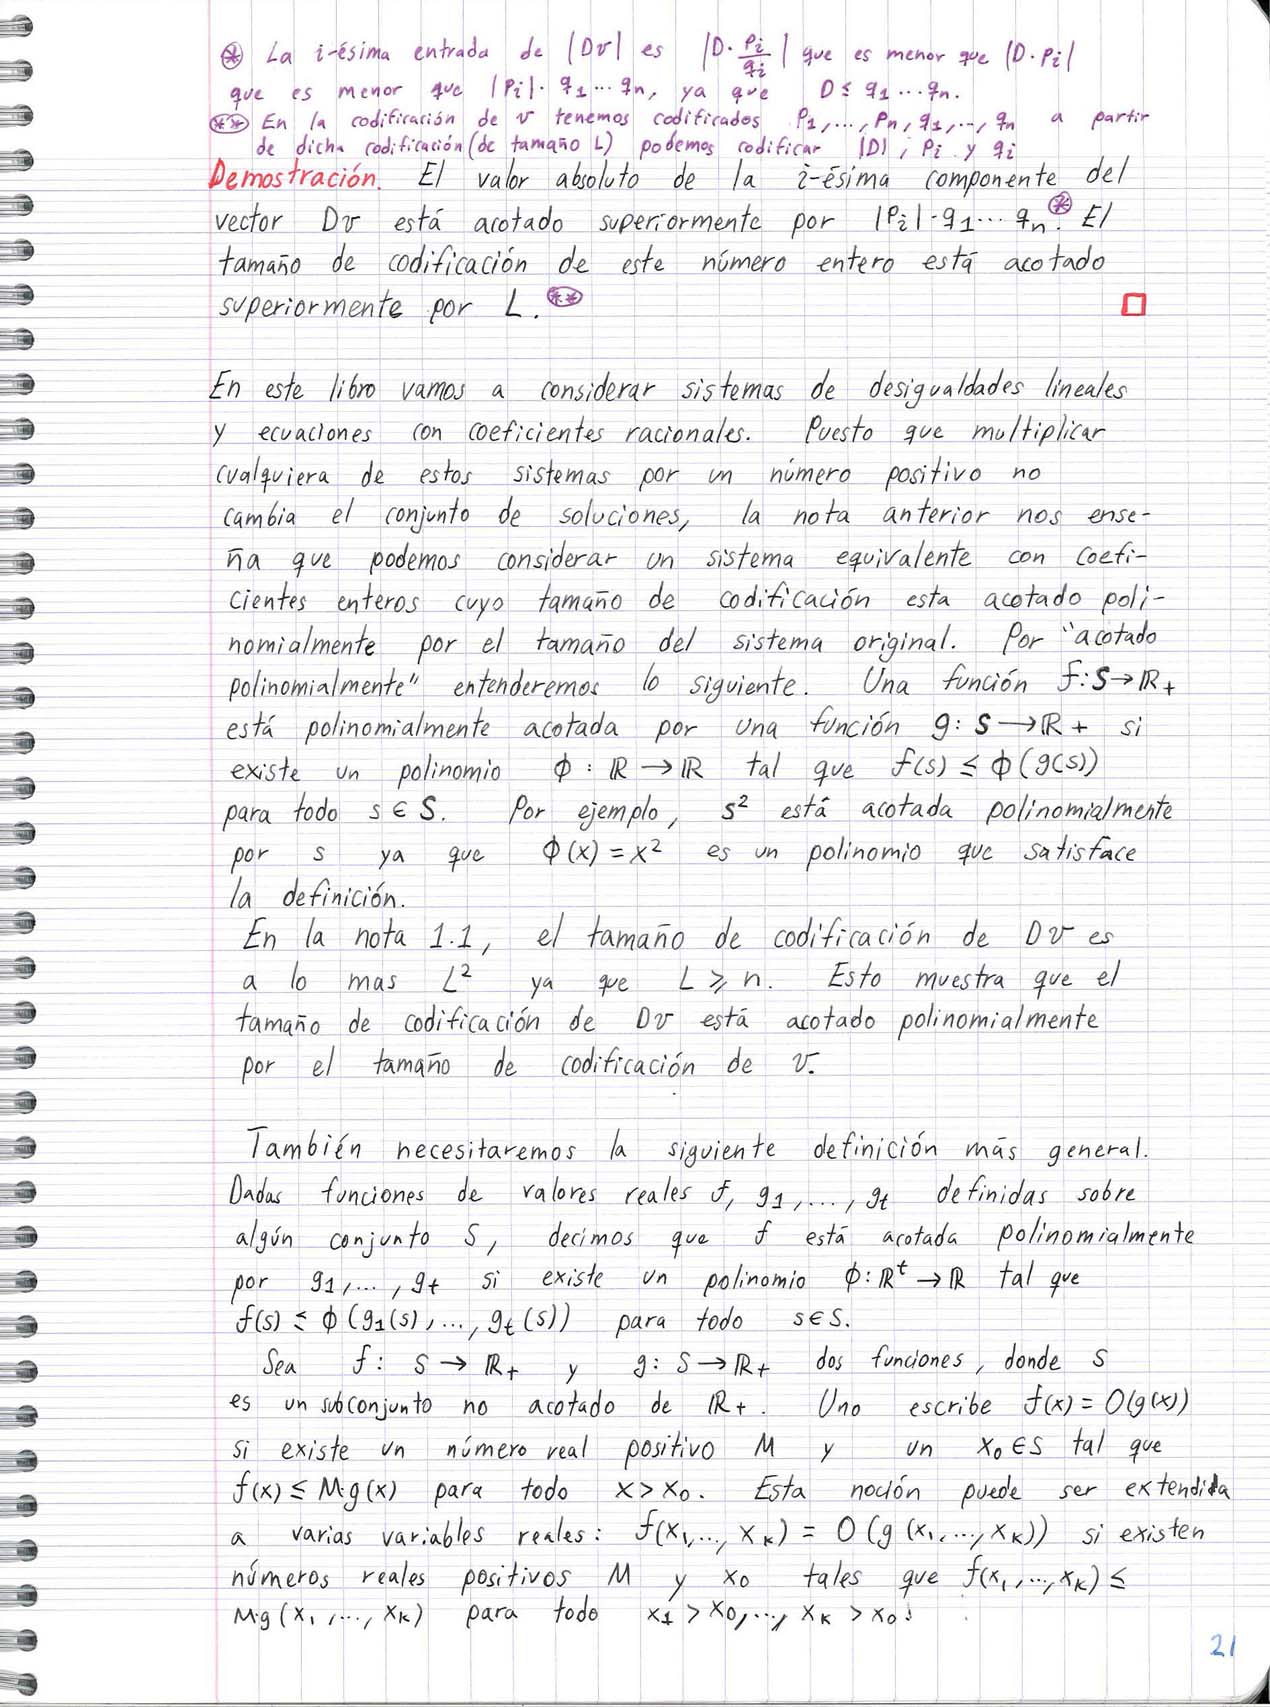 ⊛ La i-ésima entrada de |Dv| es |D·p_i/q_i| que es menor que |D·p_i|
que es menor que |p_i|·q_1···q_n, ya que D ≤ q_1···q_n.
(**) En la codificación de v tenemos codificados p_1,...,p_n,q_1,..,q_n a partir
de dicha codificación (de tamaño L) podemos codificar |D|, p_i y q_i
Demostración. El valor absoluto de la i-ésima componente del
vector Dv está acotado superiormente por |p_i|·q_1···q_n.⊛ El
tamaño de codificación de este número entero está acotado
superiormente por L.(**) □
En este libro vamos a considerar sistemas de desigualdades lineales
y ecuaciones con coeficientes racionales. Puesto que multiplicar
cualquiera de estos sistemas por un número positivo no
cambia el conjunto de soluciones, la nota anterior nos ense-
ña que podemos considerar un sistema equivalente con coefi-
cientes enteros cuyo tamaño de codificación esta acotado poli-
nomialmente por el tamaño del sistema original. Por "acotado
polinomialmente" entenderemos lo siguiente. Una función f: S→ℝ+
está polinomialmente acotada por una función g: S→ℝ+ si
existe un polinomio ϕ: ℝ→ℝ tal que f(s) ≤ ϕ(g(s))
para todo s∈S. Por ejemplo, s² está acotada polinomialmente
por s ya que ϕ(x)=x² es un polinomio que satisface
la definición.
En la nota 1.1, el tamaño de codificación de Dv es
a lo mas L² ya que L⩾n. Esto muestra que el
tamaño de codificación de Dv está acotado polinomialmente
por el tamaño de codificación de v.
También necesitaremos la siguiente definición más general.
Dadas funciones de valores reales f, g_1,...,g_t definidas sobre
algún conjunto S, decimos que f está acotada polinomialmente
por g_1,...,g_t si existe un polinomio ϕ: ℝ^t→ℝ tal que
f(s) ≤ ϕ(g_1(s),...,g_t(s)) para todo s∈S.
Sea f: S→ℝ+ y g: S→ℝ+ dos funciones, donde S
es un subconjunto no acotado de ℝ+. Uno escribe f(x)=O(g(x))
si existe un número real positivo M y un x_0∈S tal que
f(x) ≤ M·g(x) para todo x>x_0. Esta noción puede ser extendida
a varias variables reales: f(x_1,...,x_k) = O(g(x_1,...,x_k)) si existen
números reales positivos M y x_0 tales que f(x_1,...,x_k) ≤
M·g(x_1,...,x_k) para todo x_1>x_0,...,x_k>x_0.
21